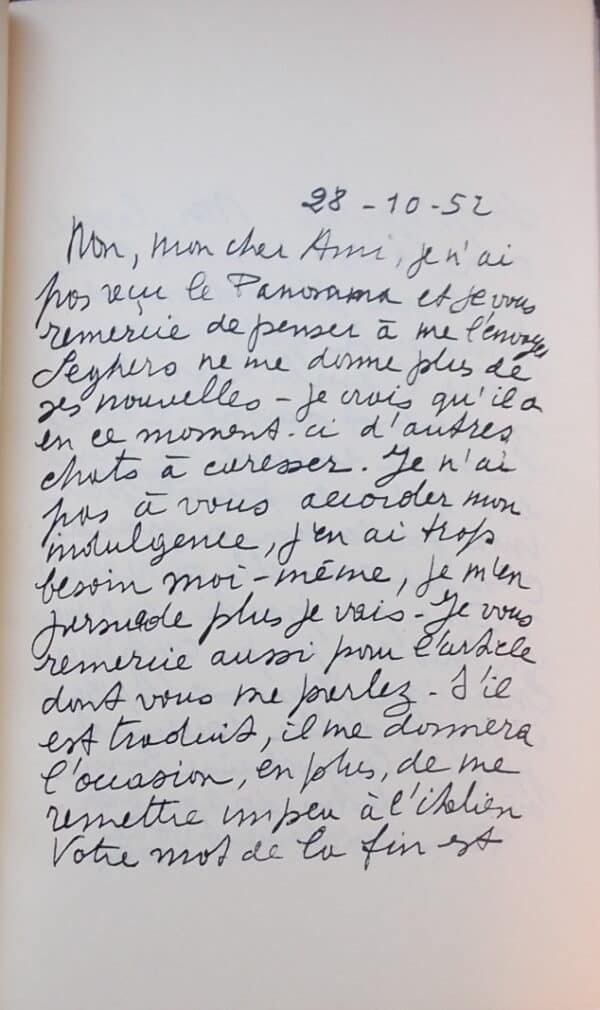 28 - 10 - 52
Non, mon cher Ami, je n'ai
pas reçu le Panorama et je vous
remercie de penser à me l'envoyer
Seghers ne me donne plus de
ses nouvelles - je crois qu'il a
en ce moment-ci d'autres
chats à caresser. Je n'ai
pas à vous accorder mon
indulgence, j'en ai trop
besoin moi-même, je m'en
persuade plus je vais - Je vous
remercie aussi pour l'article
dont vous me parlez - S'il
est traduit, il me donnera
l'occasion, en plus, de me
remettre un peu à l'italien
Votre mot de la fin est